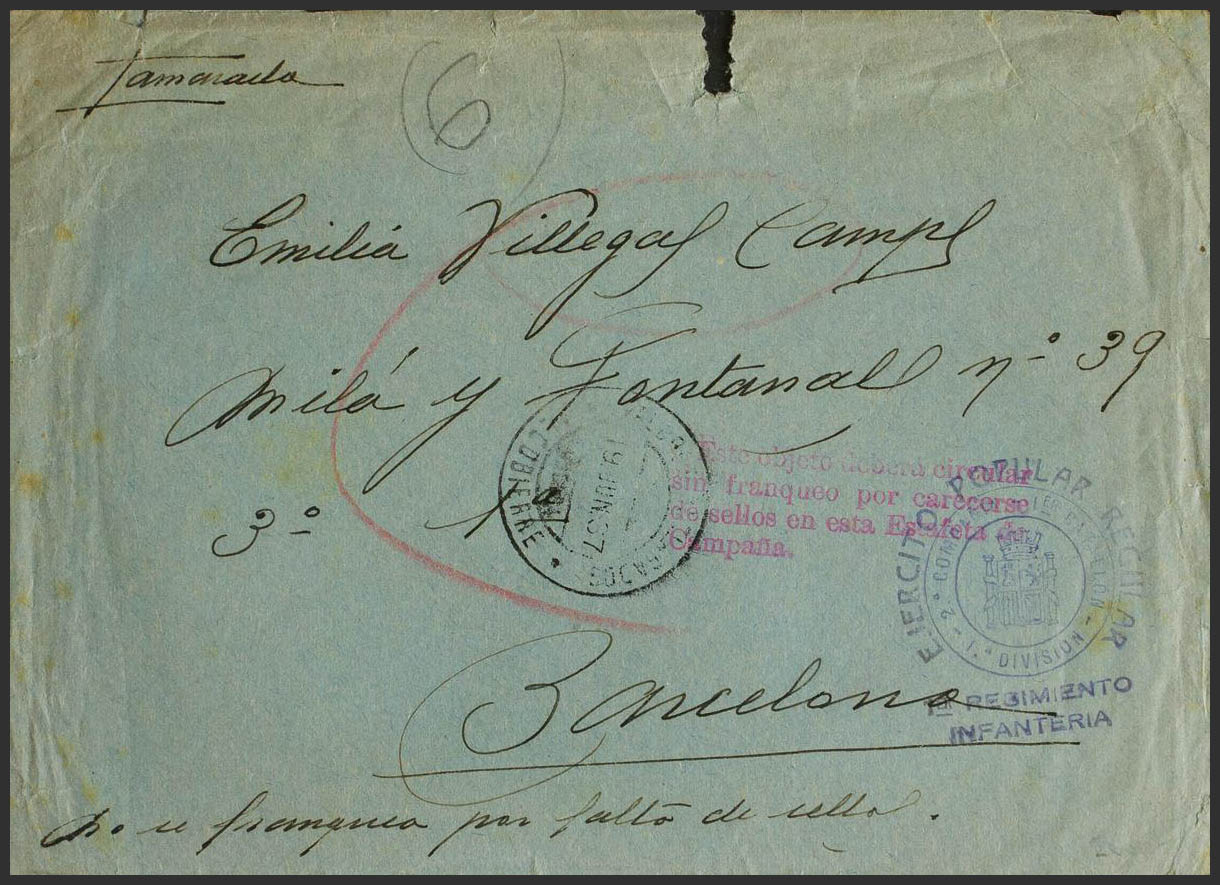 Camarada
6
Emilia Villegas Camps
Milá y Fontanal nº 39
3º 1ª
19 JUN 37
Este objeto deberá circular
sin franqueo por carecerse
de sellos en esta Estafeta de
Campaña.
EJERCITO POPULAR REGULAR
2ª COMPª
BATALLON
1.ª DIVISION
III REGIMIENTO
INFANTERIA
Barcelona
No se franquea por falta de sello.